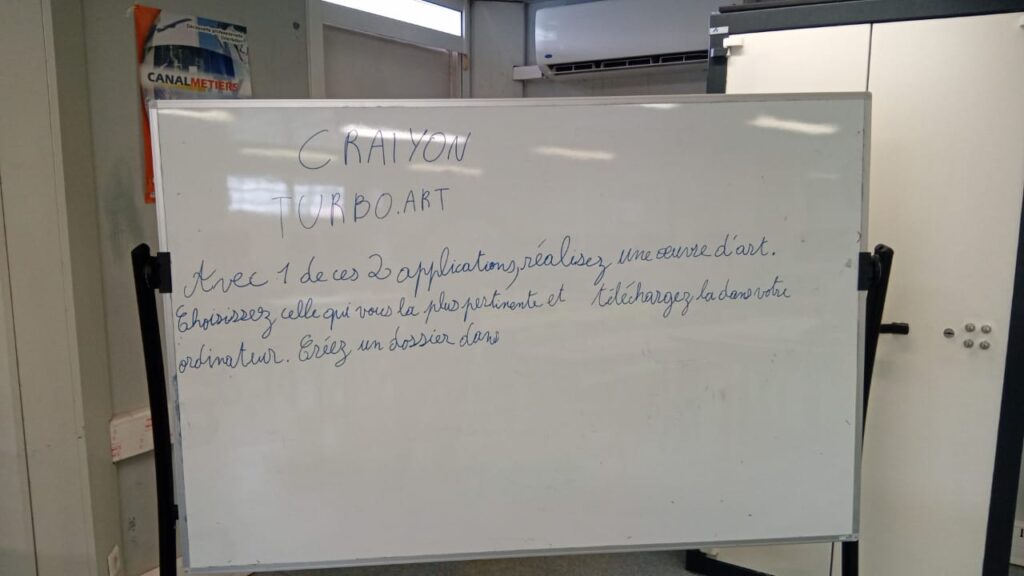 CANALMETIERS
CRAIYON
TURBO.ART
Avec 1 de ces 2 applications, réalisez une œuvre d'art.
Choisissez celle qui vous la plus pertinente et téléchargez la dans votre
ordinateur. Créez un dossier dans